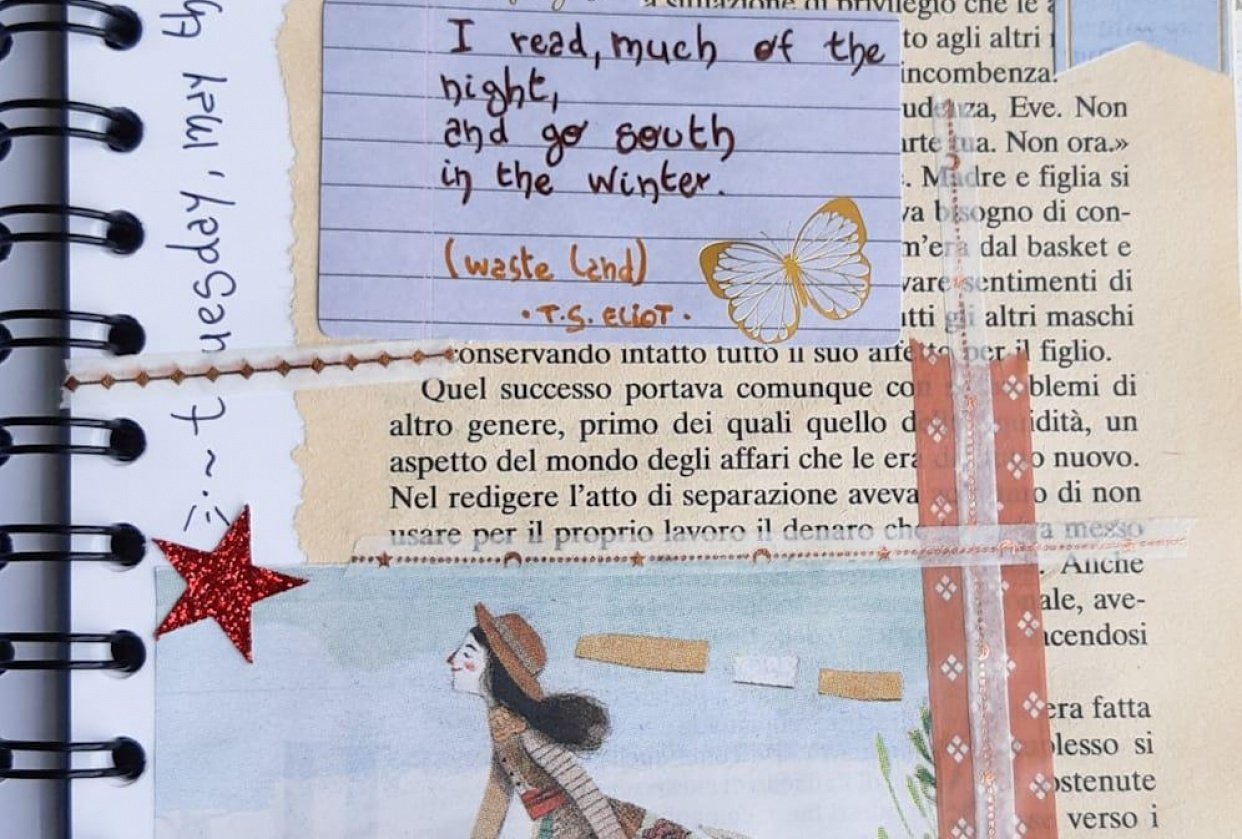 ~ tuesday, may
I read, much of the
night,
and go south
in the winter.
(waste land)
• T.S. ELIOT •
situazione di privilegio che le
to agli altri
incombenza.
Eve. Non
Non ora.»
Madre e figlia si
bisogno di con-
m'era dal basket e
sentimenti di
altri maschi
conservando intatto tutto il suo affetto per il figlio.
Quel successo portava comunque con blemi di
altro genere, primo dei quali quello idità, un
aspetto del mondo degli affari che le era o nuovo.
Nel redigere l'atto di separazione aveva o di non
usare per il proprio lavoro il denaro che messo
Anche
ale, ave-
cendosi
era fatta
plesso si
ostenute
verso i